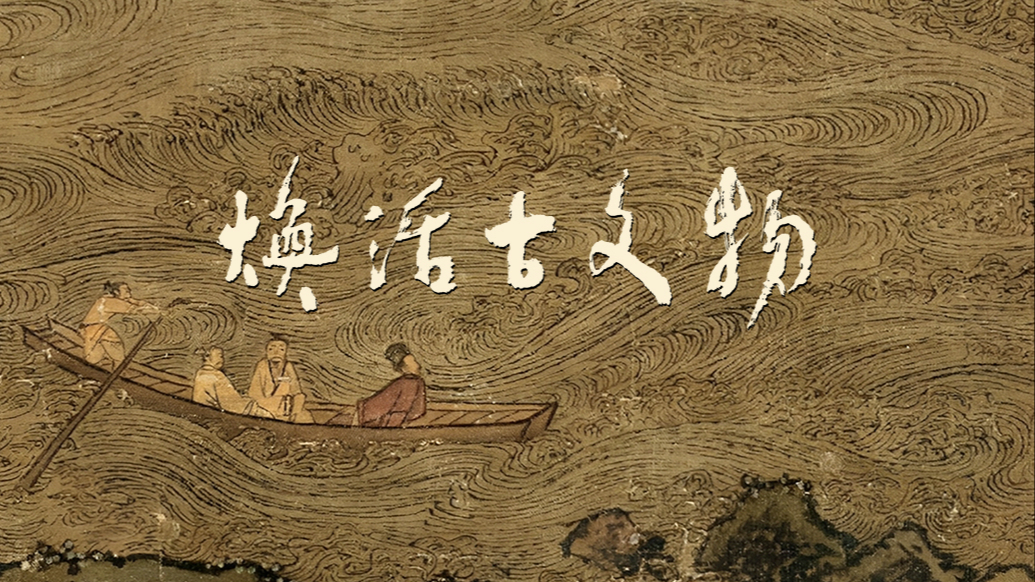 焕活古文物